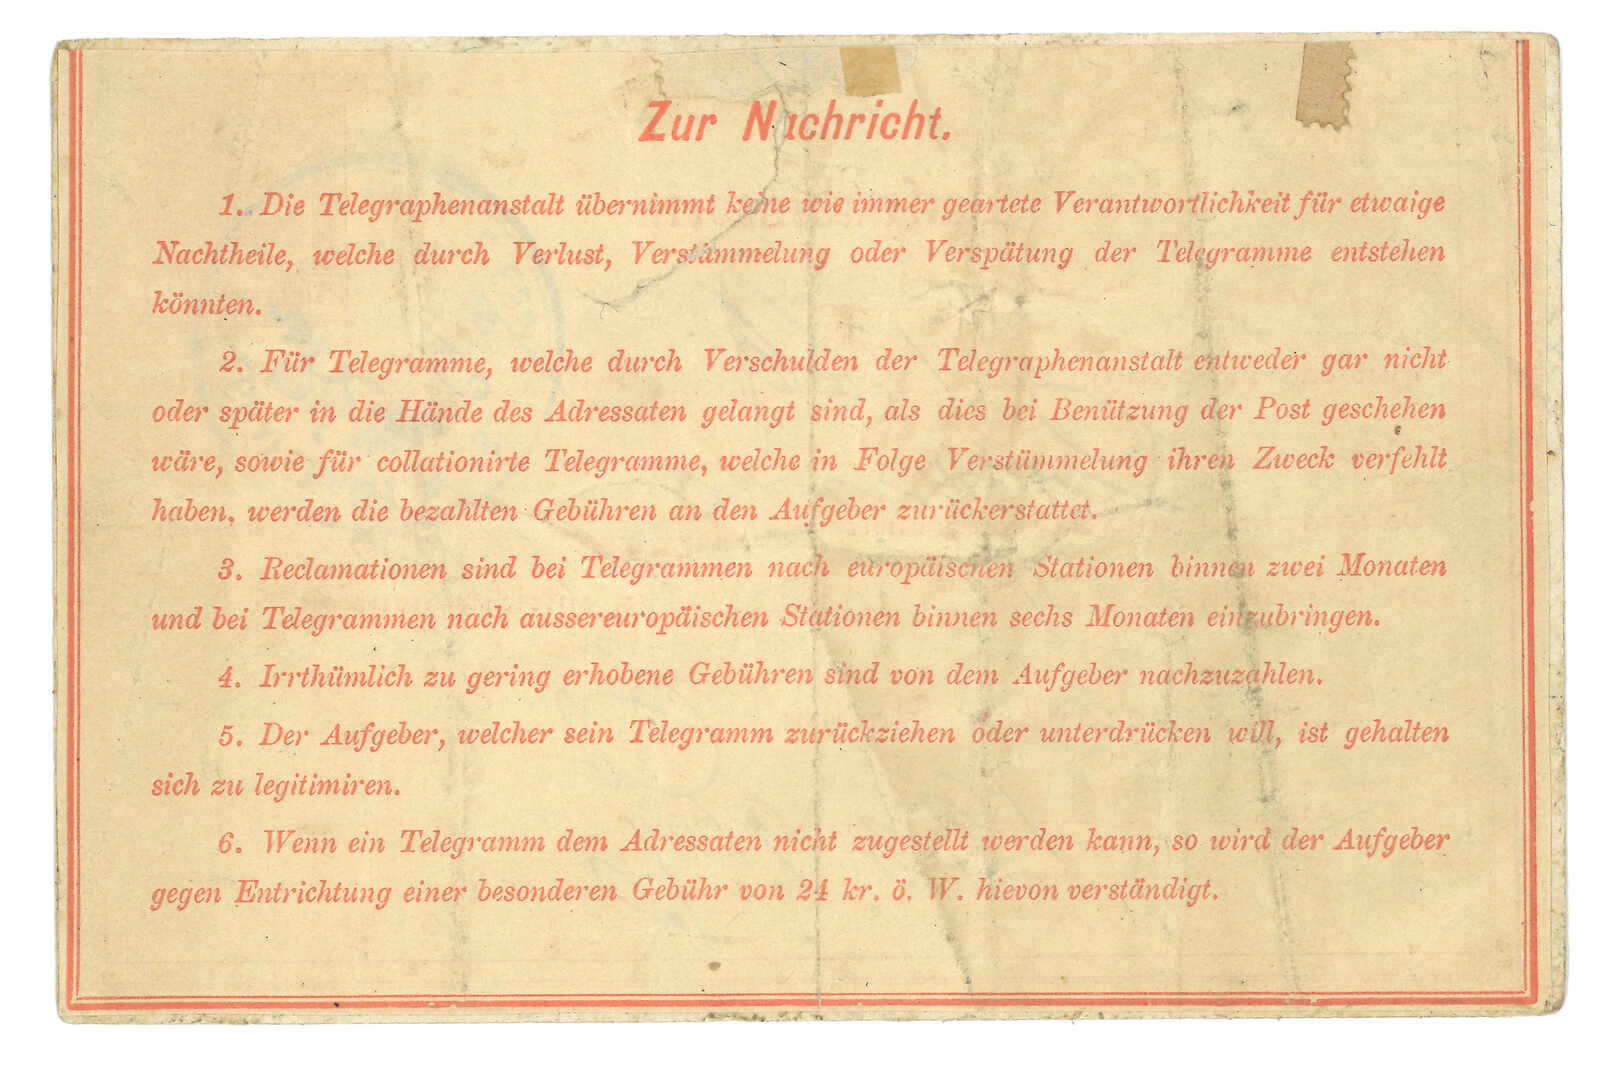 Zur Nachricht.
1. Die Telegraphenanstalt übernimmt keine wie immer geartete Verantwortlichkeit für etwaige
Nachtheile, welche durch Verlust, Verstümmelung oder Verspätung der Telegramme entstehen
könnten.
2. Für Telegramme, welche durch Verschulden der Telegraphenanstalt entweder gar nicht
oder später in die Hände des Adressaten gelangt sind, als dies bei Benützung der Post geschehen
wäre, sowie für collationirte Telegramme, welche in Folge Verstümmelung ihren Zweck verfehlt
haben, werden die bezahlten Gebühren an den Aufgeber zurückerstattet.
3. Reclamationen sind bei Telegrammen nach europäischen Stationen binnen zwei Monaten
und bei Telegrammen nach aussereuropäischen Stationen binnen sechs Monaten einzubringen.
4. Irrthümlich zu gering erhobene Gebühren sind von dem Aufgeber nachzuzahlen.
5. Der Aufgeber, welcher sein Telegramm zurückziehen oder unterdrücken will, ist gehalten
sich zu legitimiren.
6. Wenn ein Telegramm dem Adressaten nicht zugestellt werden kann, so wird der Aufgeber
gegen Entrichtung einer besonderen Gebühr von 24 kr. ö. W. hievon verständigt.